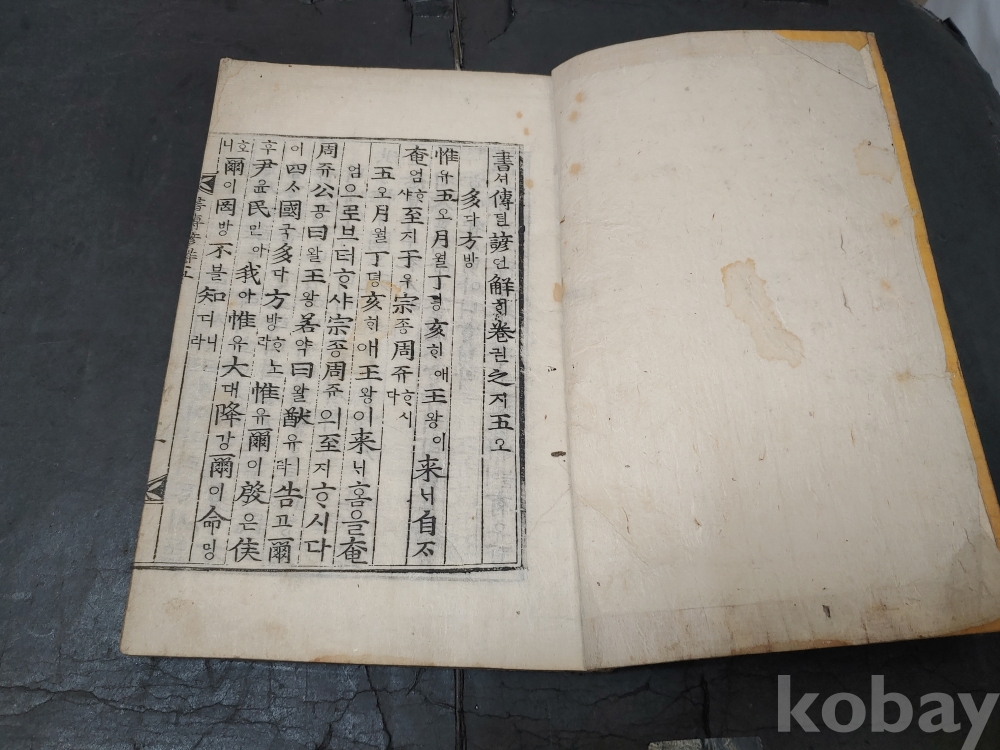 書셔傳뎐諺언解ᄒᆡ卷권之지五오
多다方방
惟유五오月월丁뎡亥ᄒᆡ애王왕이來ᄅᆡ自ᄌᆞ
奄엄ᄒᆞ샤至지于우宗종周쥬ᄒᆞ시다
五오月월丁뎡亥ᄒᆡ애王왕이來ᄅᆡ홈을奄
엄으로브터ᄒᆞ샤宗종周쥬의至지ᄒᆞ시다
周쥬公공曰왈王왕若약曰왈猷유ㅣ라告고爾
이四ᄉᆞ國국多다方방ᄒᆞ노라惟유爾이殷은侯
후尹윤民민아我아惟유大대降강爾이命명
ᄒᆞ니爾이罔망不블知디니라
書傳諺解五
一
kobay